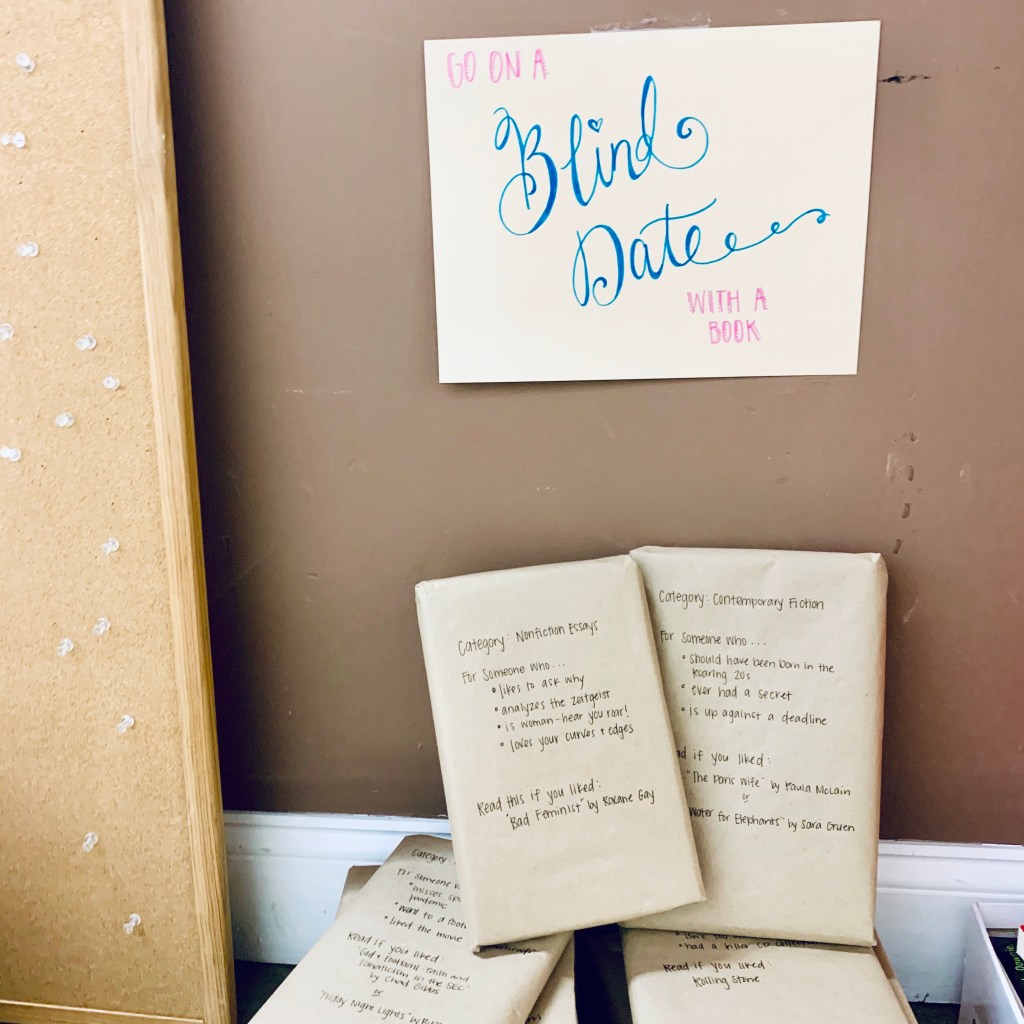 GO ON A
Blind
Date
WITH A
BOOK
Category: Nonfiction Essays
For Someone Who...
• likes to ask why
• analyzes the zeitgeist
• is woman-hear you roar!
• loves your curves + edges
Read this if you liked:
"Bad Feminist" by Roxane Gay
Category: Contemporary Fiction
For Someone Who...
• should have been born in the
Roaring 20s
• ever had a secret
• is up against a deadline
if you liked:
"The Paris Wife" by Paula McLain
or
Water for Elephants" by Sara Gruen
Category:
For Someone
• misses
pandemic
• want to a
• liked the movie
Read if you liked:
"God + Football: Faith and
Fanaticism in the SEC"
by Chad Gibbs
or
"Friday Night Lights" by
• had a killer CD
Read if you liked:
Rolling Stone